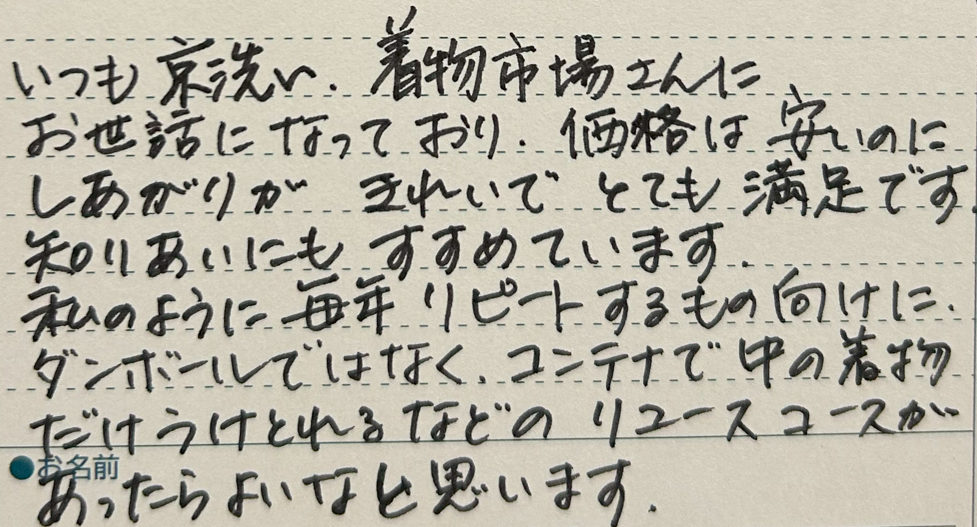 いつも京洗い、着物市場さんに
お世話になっており、価格は安いのに
しあがりがきれいでとても満足です。
知りあいにもすすめています。
私のように毎年リピートするもの向けに、
ダンボールではなく、コンテナで中の着物
だけうけとれるなどのリユースコースが
●お名前
あったらよいなと思います。